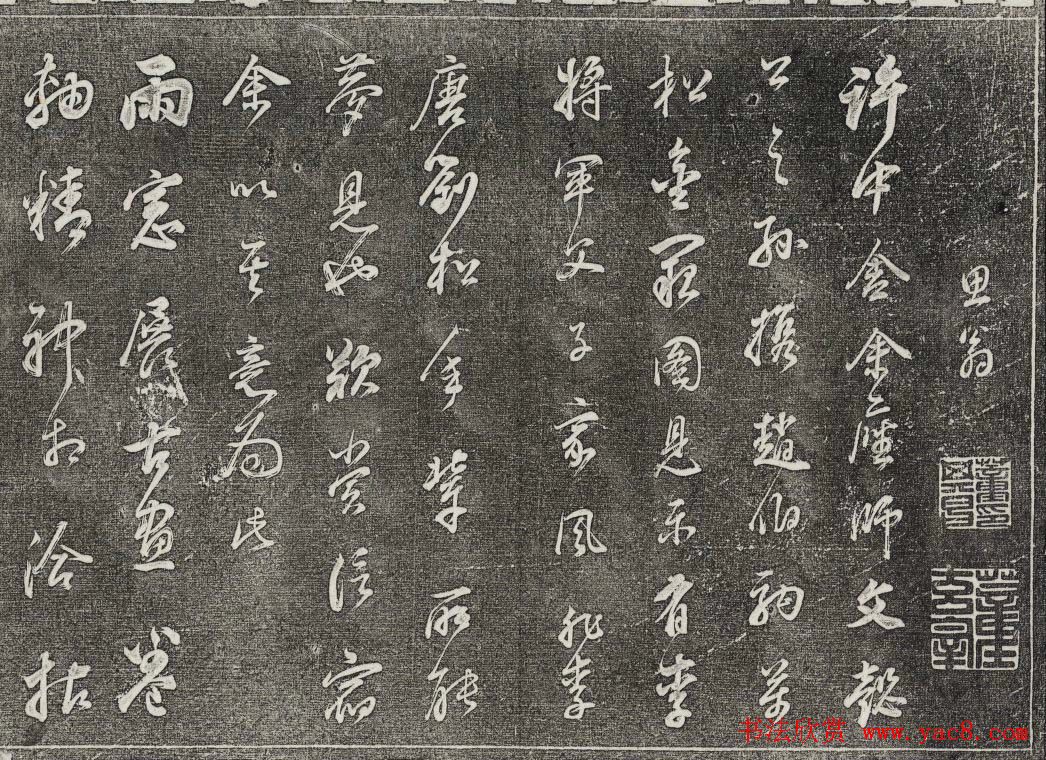 思翁
許中舍余座師文懿
公之孫攜趙伯駒萬
松金闕圖見示有李
將軍父子家風非李
唐劉松年輩所能
夢見也歎賞信宿
余以其意為此
雨窓展古畫卷
軸精神相洽拈
书法欣赏 www.yac8.com